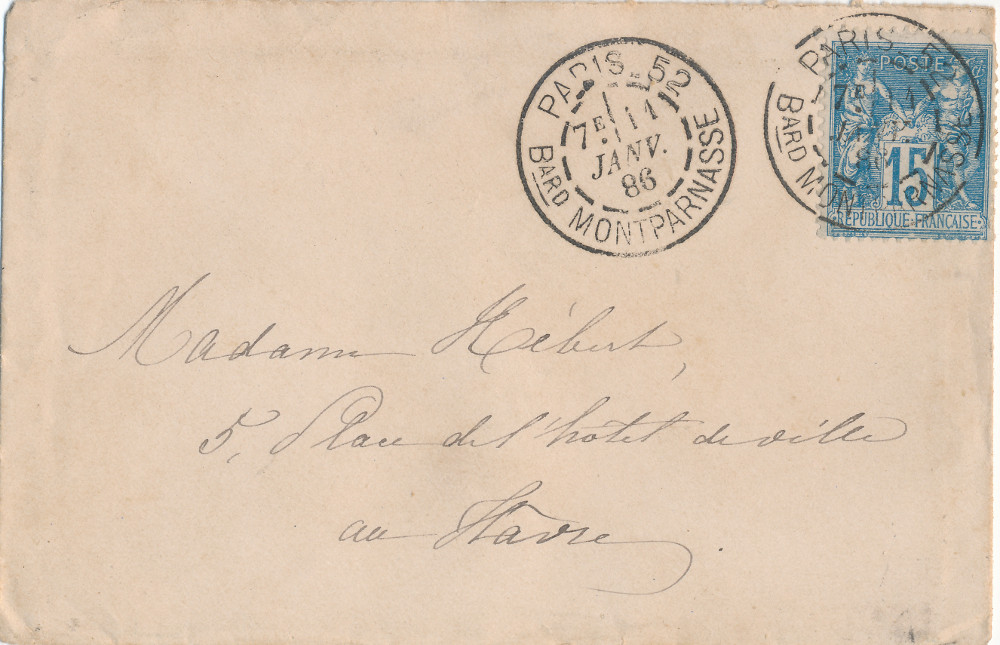 PARIS_52
7E 11
JANV.
86
BARD MONTPARNASSE
PARIS_52
7E 11
BARD MONTPARNASSE
POSTE
15
RÉPUBLIQUE FRANÇAISE
Madame Hébert,
5, Place de l'hôtel de ville
au Havre.